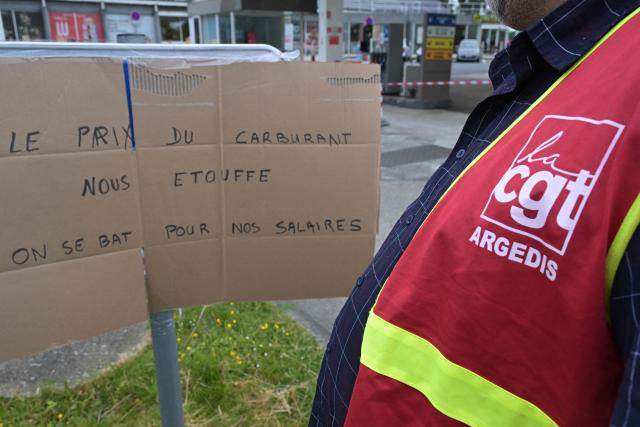 LE PRIX DU CARBURANT
NOUS ETOUFFE
ON SE BAT POUR NOS SALAIRES
la
cgt
ARGEDIS